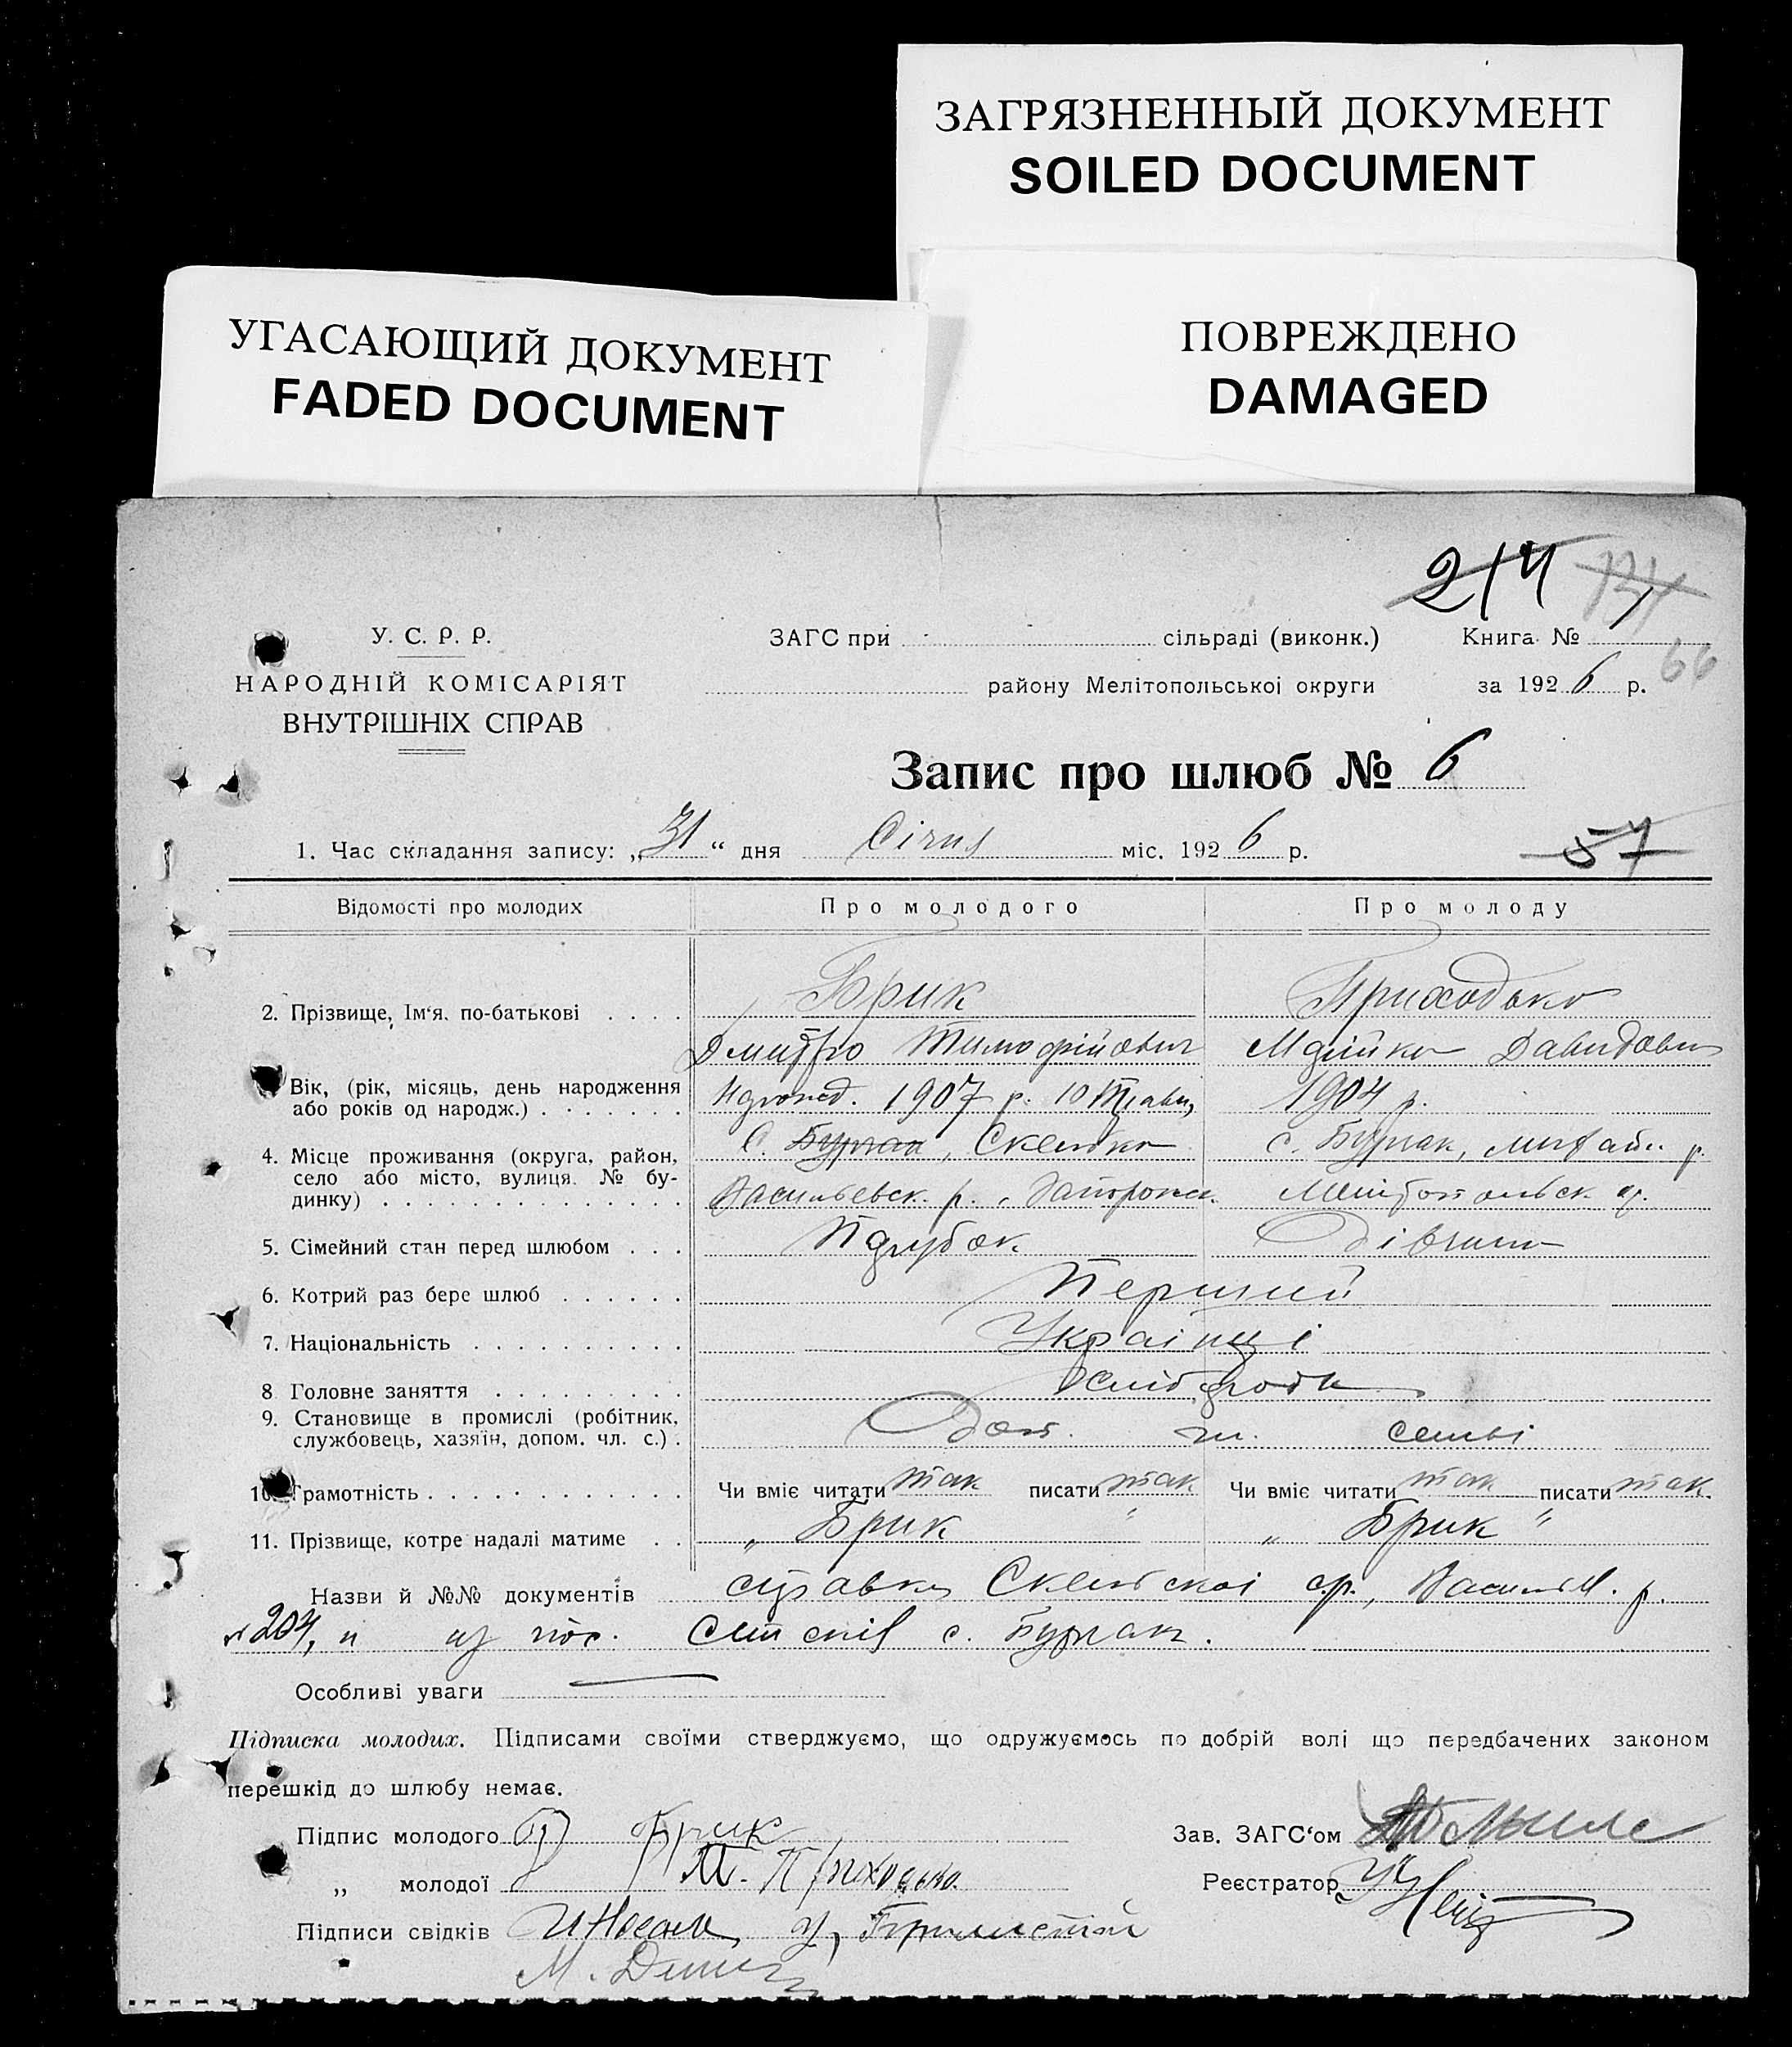 ЗАГРЯЗНЕННЫЙ ДОКУМЕНТ
SOILED DOCUMENT
УГАСАЮЩИЙ ДОКУМЕНТ
FADED DOCUMENT
ПОВРЕЖДЕНО
DAMAGED
214
У. С. Р. Р.
ЗАГС при сільраді (виконк.) Книга №
66
НАРОДНІЙ КОМІСАРІЯТ
району Мелітопольської округи за 1926 р.
ВНУТРІШНІХ СПРАВ
Запис про шлюб № 6
1. Час складання запису: „31“ дня Січня міс. 1926 р.
57
Відомості про молодих Про молодого Про молоду
2. Прізвище, Ім‘я, по-батькові Брик Приходько
Дмитро Тимофійович Давидовн
Вік, (рік, місяць, день народження
або років од народж.) 1907 р. 10 Травн 1904 р.
4. Місце проживання (округа, район,
село або місто, вулиця. № бу-
динку)
С. Бурчак, Скелько с. Бурчак, Михайл. р.
Васильевск. р., Запорожск. Мелітопольск о.
5. Сімейний стан перед шлюбом Парубок Дівчина
6. Котрий раз бере шлюб Перший
7. Національність Українці
8. Головне заняття
9. Становище в промислі (робітник,
службовець, хазяїн, допом. чл. с.) Доп. чл. семьї
10. Грамотність Чи вміє читати так писати так Чи вміє читати так писати так.
11. Прізвище, котре надалі матиме „Брик“ „Брик“
Назви й №№ документів справка Скельської с.р., Василів. р.
№ 204, и с. Бурчак.
Особливі уваги
Підписка молодих. Підписами своїми стверджуємо, що одружуємось по добрій волі що передбачених законом
перешкід до шлюбу немає.
Підпис молодого Брик Зав. ЗАГС‘ом
„ молодої М. Приходько. Реєстратор
Підписи свідків И Носаль